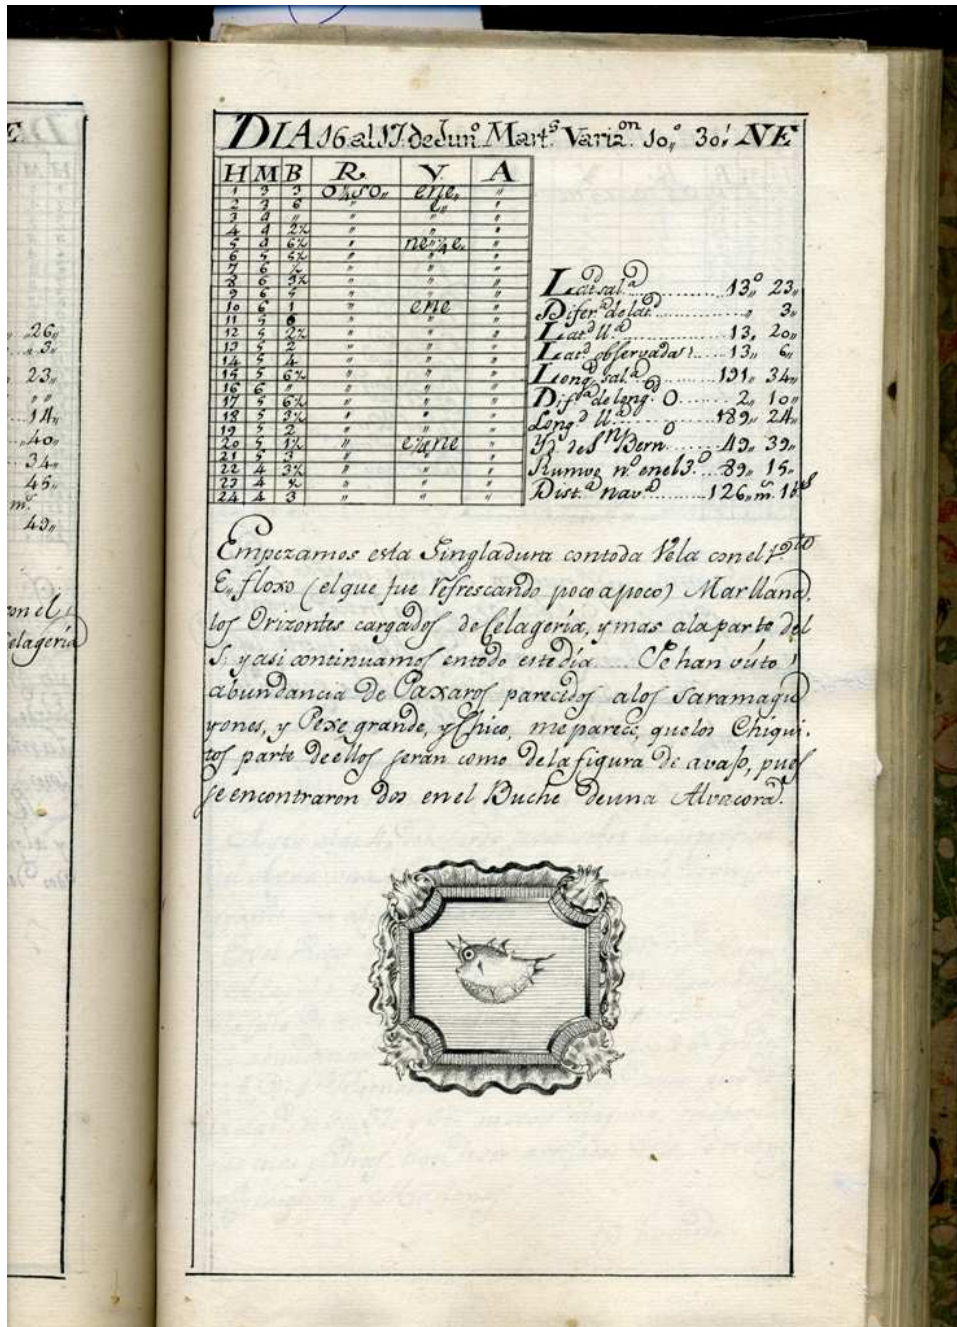 E.
26,,
3,,
23,,
,, ,,
14,,
40,,
34,,
45,,
m.ˢ
49,,
con el
Celagería
DIA 16. al 17. de Jun.º Mart.ˢ Variaᵒⁿ. 10,,º 30,,' NE
H M B R. V. A
1 3 3 O¼SO,, ene,, ,,
2 3 6 ,, e,, ,,
3 4 ,, ,, ,, ,,
4 4 2½ ,, ,, ,,
5 4 6½ ,, ne,,¼e. ,,
6 5 5½ ,, ,, ,,
7 6 ½ ,, ,, ,,
8 6 3½ ,, ,, ,,
9 6 5 ,, ,, ,,
10 6 1 ,, ene ,,
11 5 6 ,, ,, ,,
12 5 2½ ,, ,, ,,
13 5 2 ,, ,, ,,
14 5 4 ,, ,, ,,
15 5 6½ ,, ,, ,,
16 6 ,, ,, ,, ,,
17 5 6½ ,, ,, ,,
18 5 3½ ,, ,, ,,
19 5 2 ,, ,, ,,
20 5 1½ ,, e¼ne ,,
21 5 3 ,, ,, ,,
22 4 3½ ,, ,, ,,
23 4 ½ ,, ,, ,,
24 4 3 ,, ,, ,,
Lat.ᵈ sal.ᵃ 13º 23,,
Difer.ᵃ de lat.ᵈ ,, 3,,
Lat.ᵈ ll.ᵃ 13,, 20,,
Lat.ᵈ observada 13,, 6,,
Long.ᵈ sal.ᵃ 191,, 34,,
Dif.ᵃ de long.ᵈ O 2,, 10,,
Long.ᵈ ll.ᵃ 189,, 24,,
Y.ᵈ de S.ⁿ Bern.º 49,, 39,,
Rumvo n.º en el 3.º 89,, 15,,
Dist.ᵃ nav.ᵃ 126,, m.ˢ
Empezamos esta Singladura con toda Vela con el V.ᵗᵒ
E,, floxo (el que fue refrescando poco a poco) Mar llana,
los Orizontes cargados de Celagería, y mas a la parte del
S: y asi continuamos en todo este día. Se han visto
abundancia de Paxaros parecidos a los Saramagu
yones, y Pexe grande, y Chico, me parece, que los Chiqui-
tos parte de ellos serán como de la figura de avaxo, pues
se encontraron dos en el Buche de una Alvacora.